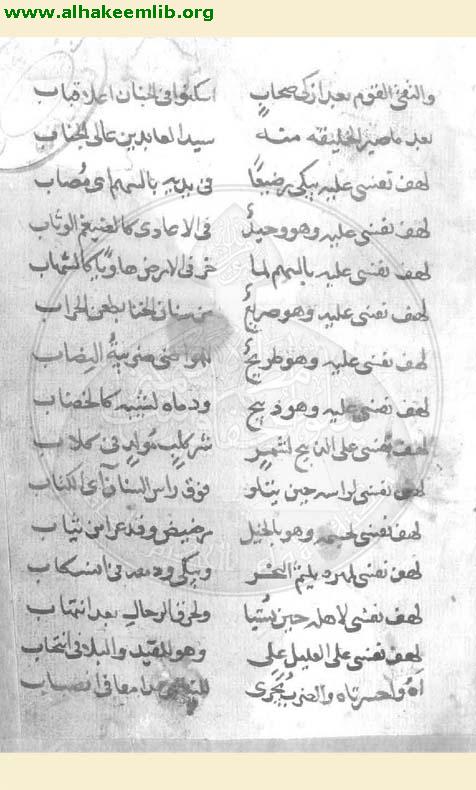 www.alhakeemlib.org
والتقى القوم بعد ازكى صحاب اسكنوا في الجنان اعلا قباب
بعد ما صير الخليقه منه سيد العابدين عالى الجناب
لهف نفسى عليه يبكى رضيعًا في يديه بالسهم اى مصاب
لهف نفسى عليه وهو وحيدٌ في الاعادى كالضيغم الوثاب
لهف نفسى عليه بالسهم لما خر في الارض هاويًا كالشهاب
لهف نفسى عليه وهو صريعٌ من سنان الخنا بطعن الحراب
لهف نفسى عليه وهو طريحٌ للمواضى ضريبةُ البضاب
لهف نفسى عليه وهو ذبيح ودماه لشيبه كالخضاب
لهف نفسى على الذبيح لشمرٍ شر كلبٍ مولدٍ في كلاب
لهف نفسى لراسه حين يتلو فوق راس السنان آى الكتاب
لهف نفسى لجسمه وهو بالخيل رضيض وقد عرا من ثياب
لهف نفسى يلثم النحر ويبكى ودمعه في انسكاب
لهف نفسى لاهله حين تستبا ولحرق الرحال بعد انتهاب
لهف نفسى على العليل على وهو للقيد والبلا في انتحاب
آه واحسرتاه والضرب يجرى دمعا في انصباب